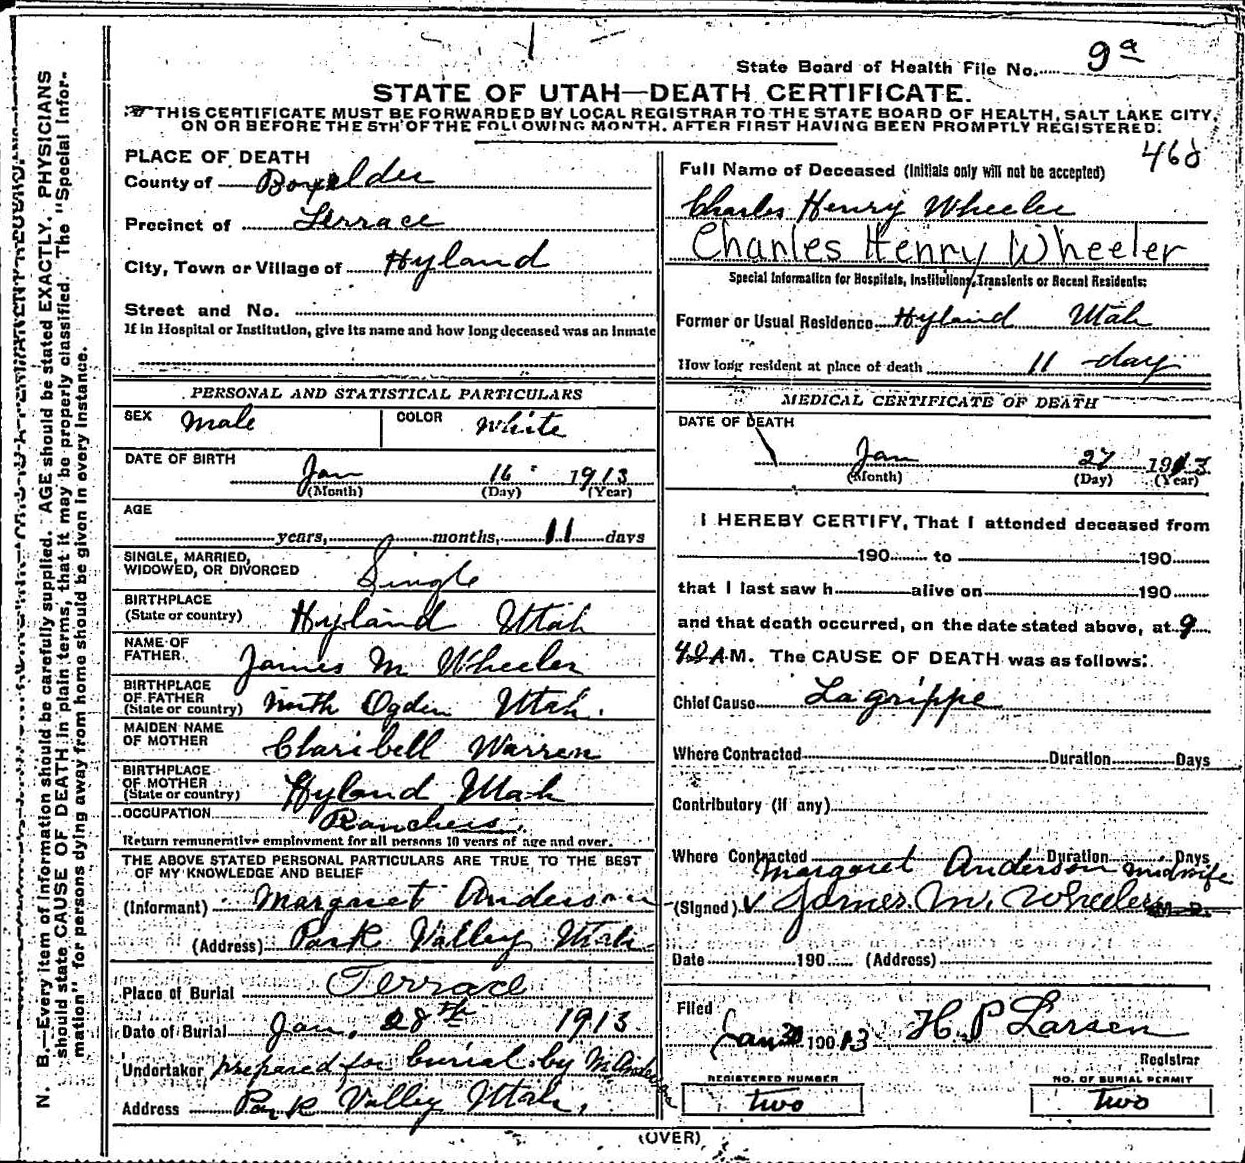 State Board of Health File No. 9a
STATE OF UTAH—DEATH CERTIFICATE.
THIS CERTIFICATE MUST BE FORWARDED BY LOCAL REGISTRAR TO THE STATE BOARD OF HEALTH, SALT LAKE CITY,
ON OR BEFORE THE 5TH OF THE FOLLOWING MONTH, AFTER FIRST HAVING BEEN PROMPTLY REGISTERED.
468
N. B.—Every item of information should be carefully supplied. AGE should be stated EXACTLY. PHYSICIANS
should state CAUSE OF DEATH in plain terms, that it may be properly classified. The "Special Infor-
mation" for persons dying away from home should be given in every instance.
PLACE OF DEATH
County of Boxelder
Precinct of Terrace
City, Town or Village of Hyland
Street and No.
If in Hospital or Institution, give its name and how long deceased was an inmate
PERSONAL AND STATISTICAL PARTICULARS
SEX Male COLOR White
DATE OF BIRTH
Jan 16 1913
(Month) (Day) (Year)
AGE
years, months, 11 days
SINGLE, MARRIED,
WIDOWED, OR DIVORCED Single
BIRTHPLACE
(State or country) Hyland Utah
NAME OF
FATHER James M Wheeler
BIRTHPLACE
OF FATHER
(State or country) North Ogden Utah.
MAIDEN NAME
OF MOTHER Claribell Warren
BIRTHPLACE
OF MOTHER
(State or country) Hyland Utah
OCCUPATION Ranchers.
Return remunerative employment for all persons 10 years of age and over.
THE ABOVE STATED PERSONAL PARTICULARS ARE TRUE TO THE BEST
OF MY KNOWLEDGE AND BELIEF
(Informant) Margaret Anderson
(Address) Park Valley Utah
Place of Burial Terrace
Date of Burial Jan. 28th 1913
Undertaker prepared for burial by M Anderson
Address Park Valley Utah.
Full Name of Deceased (Initials only will not be accepted)
Charles Henry Wheeler
Charles Henry Wheeler
Special Information for Hospitals, Institutions, Transients or Recent Residents:
Former or Usual Residence Hyland Utah
How long resident at place of death 11 day
MEDICAL CERTIFICATE OF DEATH
DATE OF DEATH
Jan 27 1913
(Month) (Day) (Year)
I HEREBY CERTIFY, That I attended deceased from
190 to 190
that I last saw h alive on 190
and that death occurred, on the date stated above, at 9
40 A M. The CAUSE OF DEATH was as follows:
Chief Cause La grippe
Where Contracted Duration Days
Contributory (if any)
Where Contracted Duration Days
Margaret Anderson midwife
(Signed) James. M. Wheeler M. D.
Date 190 (Address)
Filed
Jan 30 190 13 H. P Larsen
Registrar
REGISTERED NUMBER
two
NO. OF BURIAL PERMIT
two
(OVER)